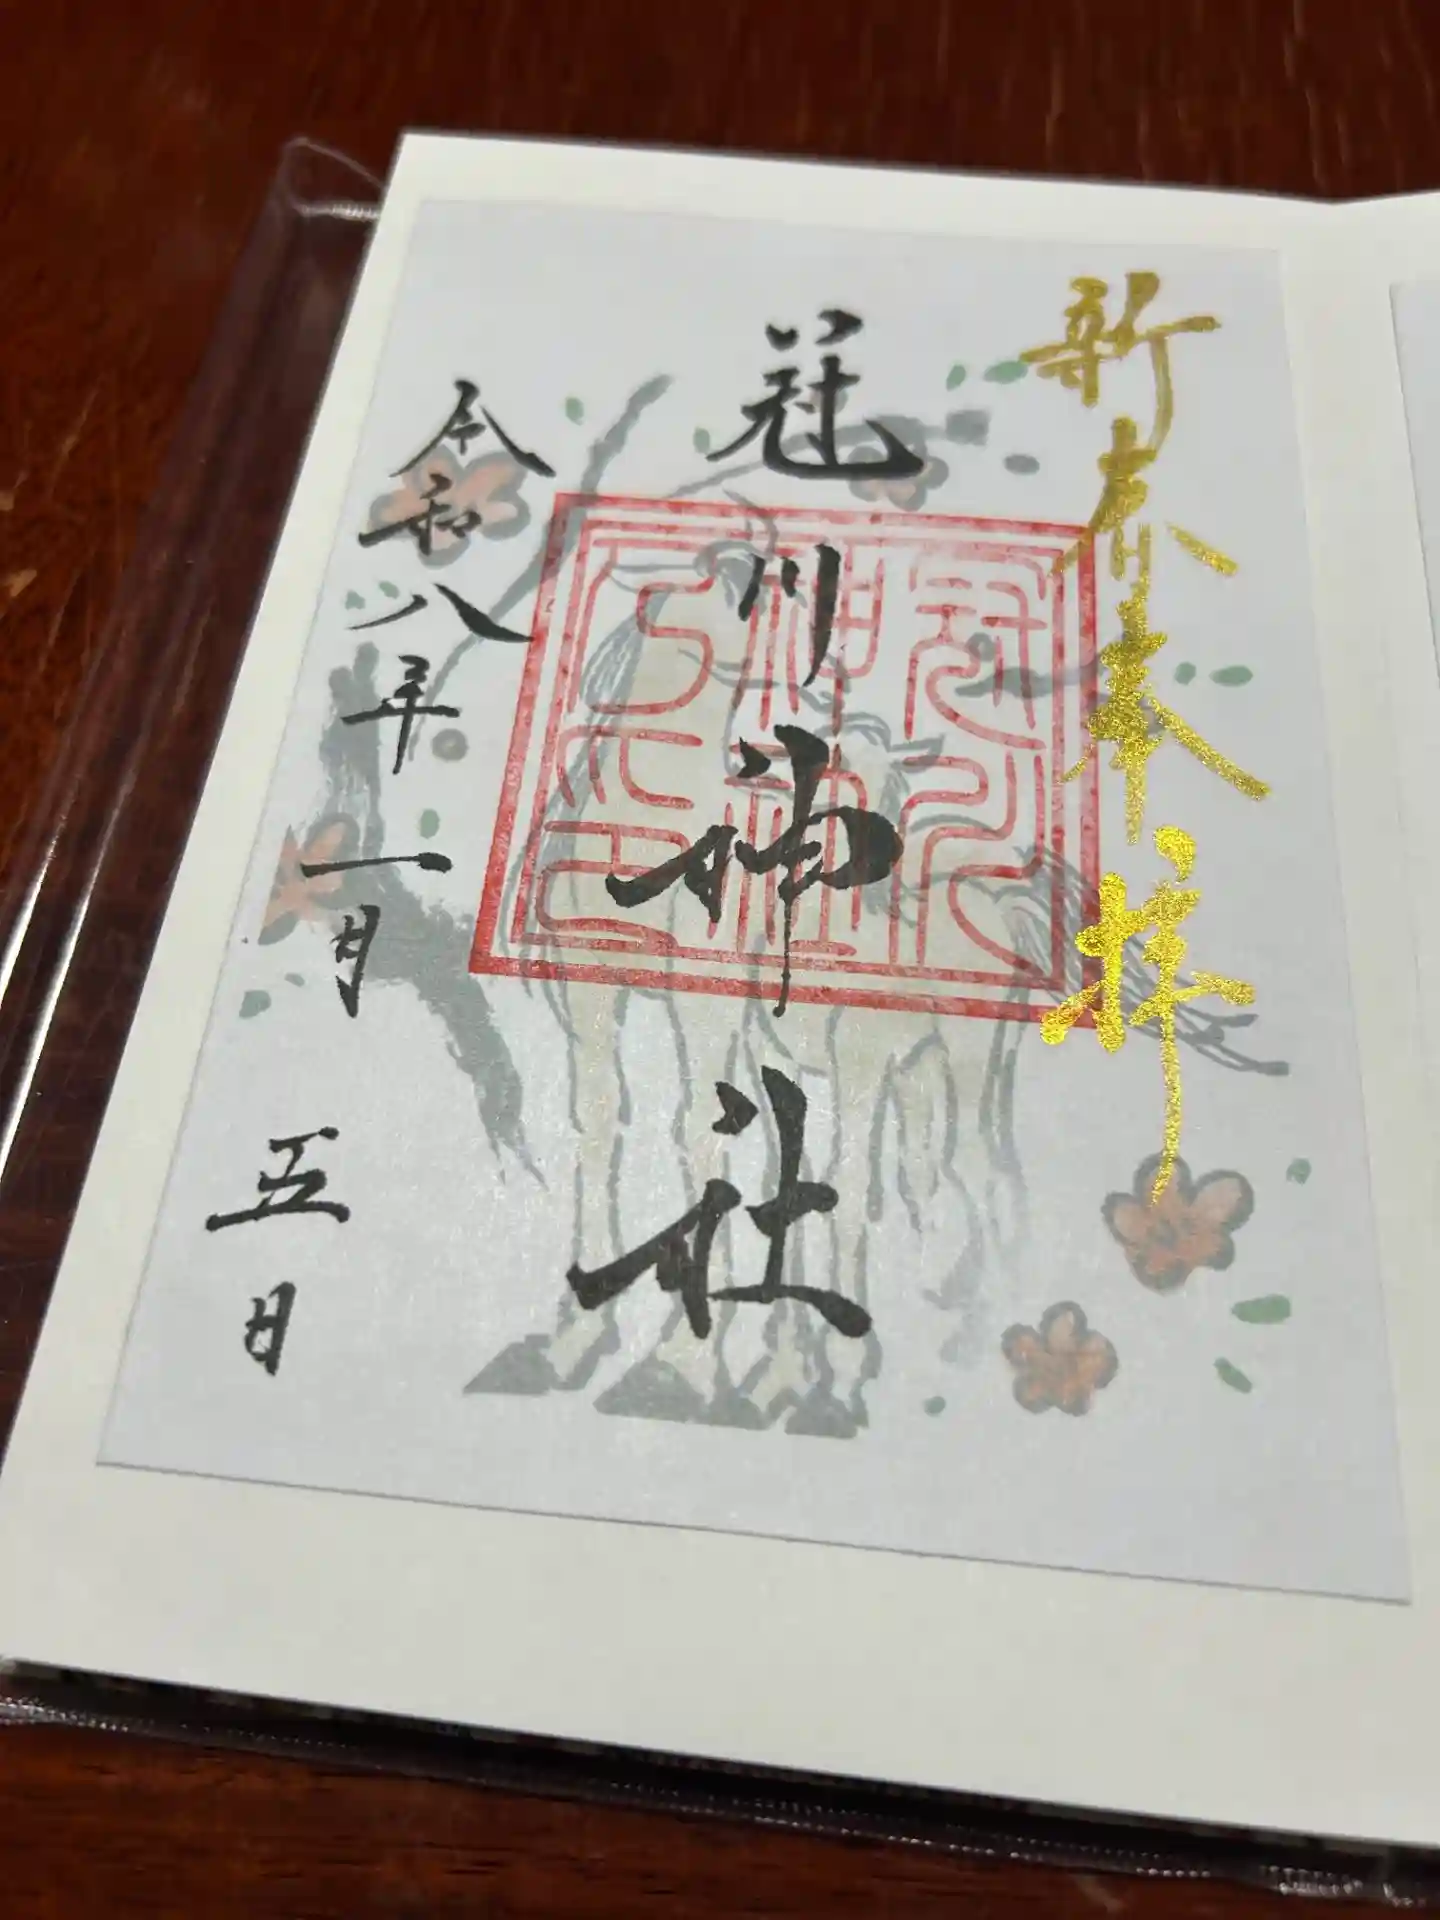 新春奉拝
冠川神社
冠川神社之印
令和八年一月五日